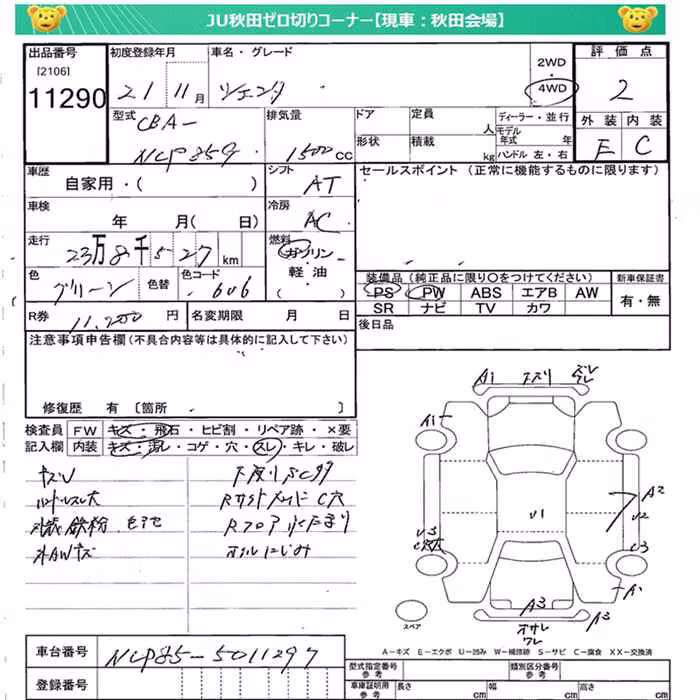 JU秋田ゼロ切りコーナー【現車：秋田会場】
出品番号 初度登録年月 車名・グレード 2WD 4WD 評価点
[2106]
11290 21 11月 シエンタ 2
型式 排気量 ドア 定員 人 ディーラー・並行 外装 内装
CBA- 形状 積載 kg モデル年式 年 E C
NCP85G 1500cc ハンドル 左・右
車歴 シフト セールスポイント (正常に機能するものに限ります)
自家用・( ) AT
車検 冷房
年 月( 日) AC
走行 燃料
23万8千527km ガソリン
軽油
( )
色 色替 色コード 装備品 (純正品に限り○をつけてください) 新車保証書
グリーン 606 PS PW ABS エアB AW 有・無
SR ナビ TV カワ
R券 11,200円 名変期限 月 日 後日品
注意事項申告欄(不具合内容等は具体的に記入して下さい)
修復歴 有 〔箇所 〕
検査員 FW キズ・飛石・ヒビ割・リペア跡・×要
記入欄 内装 キズ・汚レ・コゲ・穴・スレ・キレ・破レ
A1 キズリ
A1
A2
U1 U2
U3 U3
A1
A3 A3
オサレ
ワレ
キズU 下廻りSCサ
ハンドルスレ大 Rサイドメンバー C穴
外装鉄粉 Rフロア 水たまり
オイルにじみ
スペア
A－キズ E－エクボ U－凹み W－補修跡 S－サビ C－腐食 XX－交換済
車台番号 NCP85-5011297
登録番号
型式指定番号 参考 類別区分番号 参考
車庫証明用 参考 長さ cm 幅 cm 高さ cm